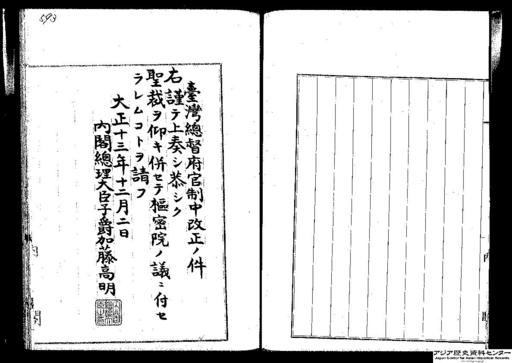 593
臺灣總督府官制中改正ノ件
右謹テ上奏シ恭シク
聖裁ヲ仰キ併セテ樞密院ノ議ニ付セ
ラレムコトヲ請フ
大正十三年十二月二日
內閣總理大臣子爵加藤高明
內
閣
アジア歴史資料センター
Japan Center for Asian Historical Records